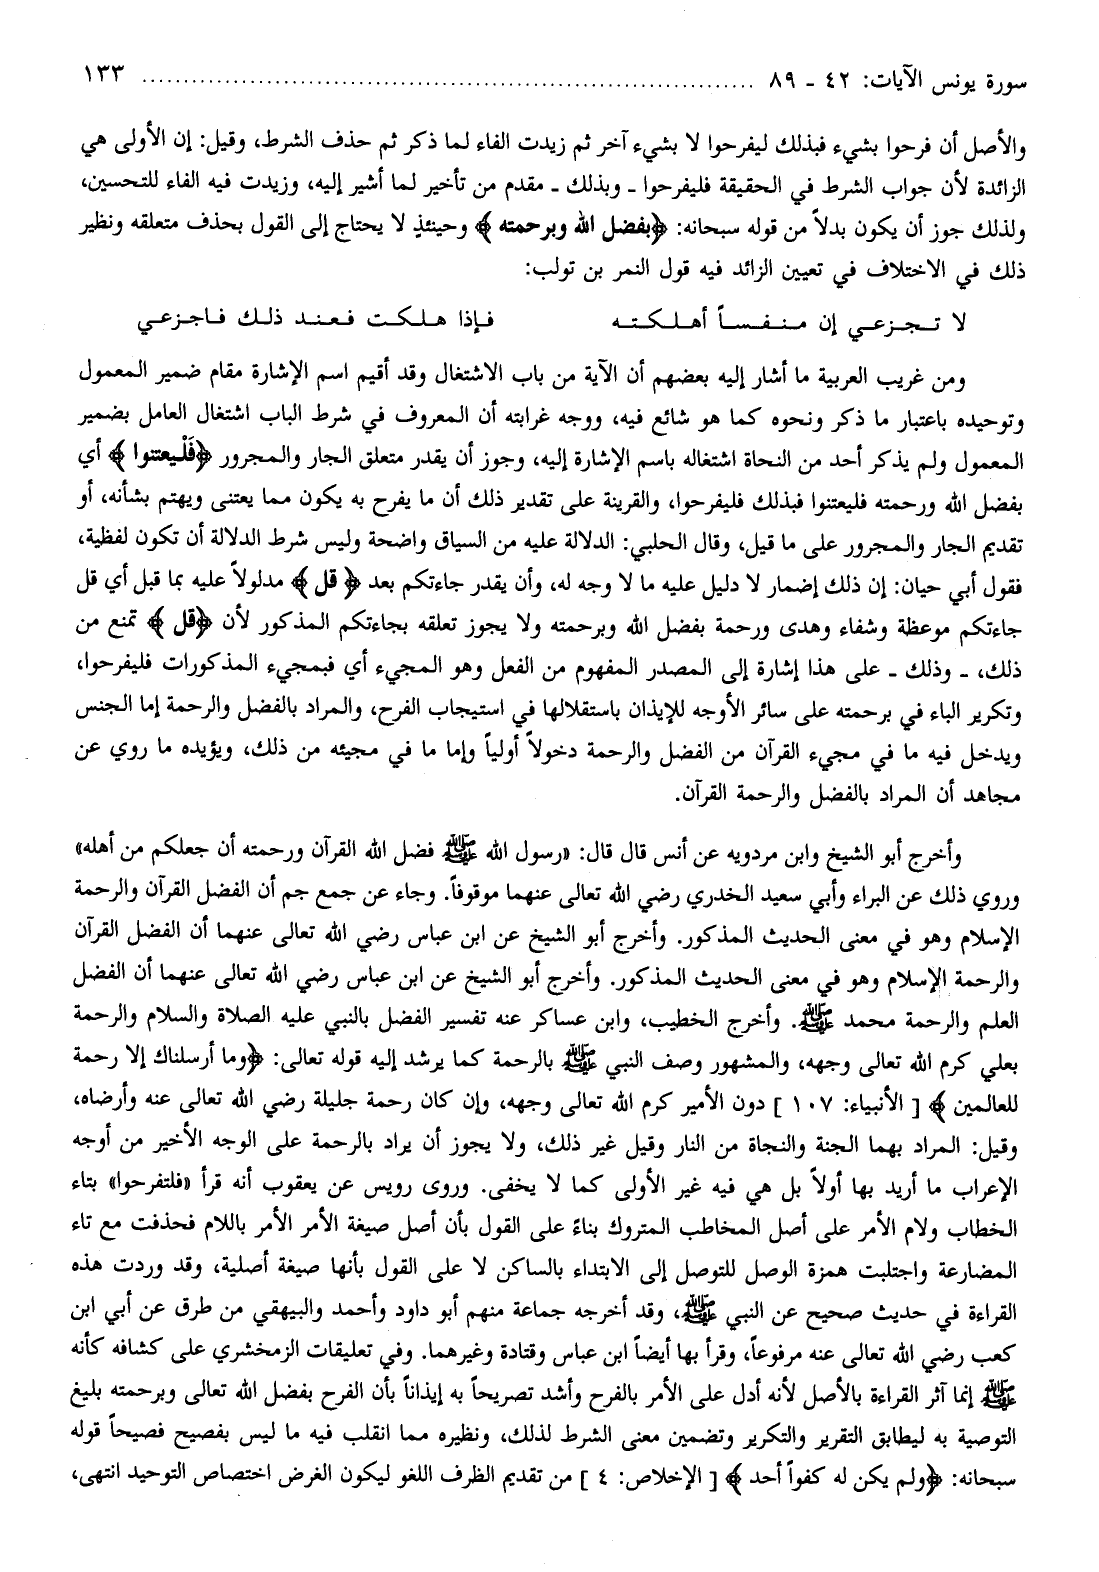 سورة يونس الآيات: ٤٢ ـ ٨٩ ........................................................................... ١٣٣
والأصل أن فرحوا بشيء فبذلك ليفرحوا لا بشيء آخر ثم زيدت الفاء لما ذكر ثم حذف الشرط، وقيل: إن الأولى هي
الزائدة لأن جواب الشرط في الحقيقة فليفرحوا ـ وبذلك ـ مقدم من تأخير لما أشير إليه، وزيدت فيه الفاء للتحسين،
ولذلك جوز أن يكون بدلاً من قوله سبحانه: ﴿بفضل الله وبرحمته﴾ وحينئذٍ لا يحتاج إلى القول بحذف متعلقه ونظير
ذلك في الاختلاف في تعيين الزائد فيه قول النمر بن تولب:
لا تجزعي إن منفساً أهلكته فإذا هلكت فعند ذلك فاجزعي
ومن غريب العربية ما أشار إليه بعضهم أن الآية من باب الاشتغال وقد أقيم اسم الإشارة مقام ضمير المعمول
وتوحيده باعتبار ما ذكر ونحوه كما هو شائع فيه، ووجه غرابته أن المعروف في شرط الباب اشتغال العامل بضمير
المعمول ولم يذكر أحد من النحاة اشتغاله باسم الإشارة إليه، وجوز أن يقدر متعلق الجار والمجرور ﴿فَلْيعتنوا﴾ أي
بفضل الله ورحمته فليعتنوا فبذلك فليفرحوا، والقرينة على تقدير ذلك أن ما يفرح به يكون مما يعتنى ويهتم بشأنه، أو
تقديم الجار والمجرور على ما قيل، وقال الحلبي: الدلالة عليه من السياق واضحة وليس شرط الدلالة أن تكون لفظية،
فقول أبي حيان: إن ذلك إضمار لا دليل عليه ما لا وجه له، وأن يقدر جاءتكم بعد ﴿قل﴾ مدلولاً عليه بما قبل أي قل
جاءتكم موعظة وشفاء وهدى ورحمة بفضل الله وبرحمته ولا يجوز تعلقه بجاءتكم المذكور لأن ﴿قل﴾ تمنع من
ذلك، ـ وذلك ـ على هذا إشارة إلى المصدر المفهوم من الفعل وهو المجيء أي فبمجيء المذكورات فليفرحوا،
وتكرير الباء في برحمته على سائر الأوجه للإيذان باستقلالها في استيجاب الفرح، والمراد بالفضل والرحمة إما الجنس
ويدخل فيه ما في مجيء القرآن من الفضل والرحمة دخولاً أولياً وإما ما في مجيئه من ذلك، ويؤيده ما روي عن
مجاهد أن المراد بالفضل والرحمة القرآن.
وأخرج أبو الشيخ وابن مردويه عن أنس قال قال: «رسول الله ﷺ فضل الله القرآن ورحمته أن جعلكم من أهله»
وروي ذلك عن البراء وأبي سعيد الخدري رضي الله تعالى عنهما موقوفاً. وجاء عن جمع جم أن الفضل القرآن والرحمة
الإسلام وهو في معنى الحديث المذكور. وأخرج أبو الشيخ عن ابن عباس رضي الله تعالى عنهما أن الفضل القرآن
والرحمة الإسلام وهو في معنى الحديث المذكور. وأخرج أبو الشيخ عن ابن عباس رضي الله تعالى عنهما أن الفضل
العلم والرحمة محمد ﷺ. وأخرج الخطيب، وابن عساكر عنه تفسير الفضل بالنبي عليه الصلاة والسلام والرحمة
بعلي كرم الله تعالى وجهه، والمشهور وصف النبي ﷺ بالرحمة كما يرشد إليه قوله تعالى: ﴿وما أرسلناك إلا رحمة
للعالمين﴾ [ الأنبياء: ١٠٧ ] دون الأمير كرم الله تعالى وجهه، وإن كان رحمة جليلة رضي الله تعالى عنه وأرضاه،
وقيل: المراد بهما الجنة والنجاة من النار وقيل غير ذلك، ولا يجوز أن يراد بالرحمة على الوجه الأخير من أوجه
الإعراب ما أريد بها أولاً بل هي فيه غير الأولى كما لا يخفى. وروى رويس عن يعقوب أنه قرأ «فلتفرحوا» بتاء
الخطاب ولام الأمر على أصل المخاطب المتروك بناءً على القول بأن أصل صيغة الأمر الأمر باللام فحذفت مع تاء
المضارعة واجتلبت همزة الوصل للتوصل إلى الابتداء بالساكن لا على القول بأنها صيغة أصلية، وقد وردت هذه
القراءة في حديث صحيح عن النبي ﷺ، وقد أخرجه جماعة منهم أبو داود وأحمد والبيهقي من طرق عن أبي ابن
كعب رضي الله تعالى عنه مرفوعاً، وقرأ بها أيضاً ابن عباس وقتادة وغيرهما. وفي تعليقات الزمخشري على كشافه كأنه
ﷺ إنما آثر القراءة بالأصل لأنه أدل على الأمر بالفرح وأشد تصريحاً به إيذاناً بأن الفرح بفضل الله تعالى وبرحمته بليغ
التوصية به ليطابق التقرير والتكرير وتضمين معنى الشرط لذلك، ونظيره مما انقلب فيه ما ليس بفصيح فصيحاً قوله
سبحانه: ﴿ولم يكن له كفواً أحد﴾ [ الإخلاص: ٤ ] من تقديم الظرف اللغو ليكون الغرض اختصاص التوحيد انتهى،